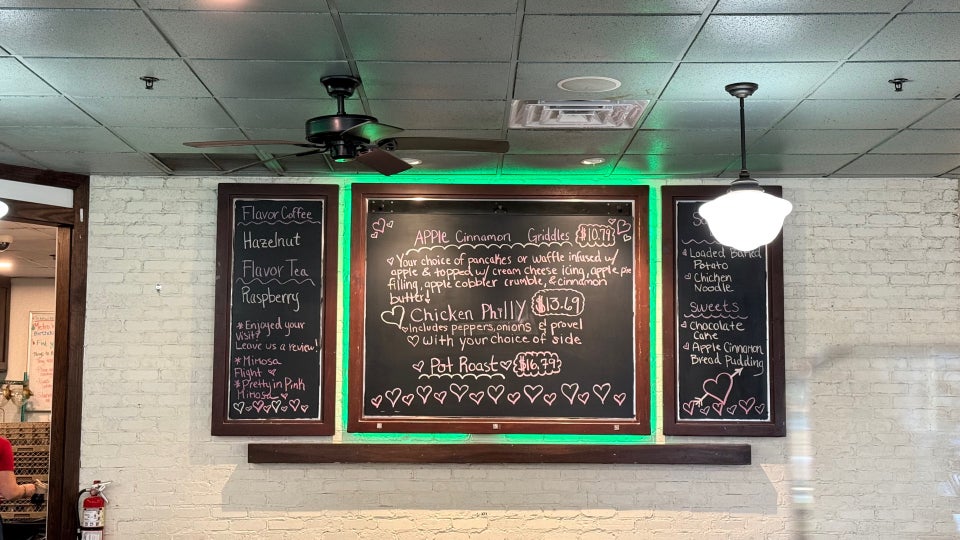 Flavor Coffee
Hazelnut
Flavor Tea
Raspberry
*Enjoyed your
visit?
Leave us a review!
*Mimosa
Flight
*Pretty in Pink
Mimosa
APPle Cinnamon Griddles $10.79
Your choice of pancakes or waffle infused w/
apple & topped w/ cream cheese icing, apple pie
filling, apple cobbler crumble, & cinnamon
butter
Chicken Philly $13.69
Includes peppers, onions & provel
with your choice of side
Pot Roast $16.79
Loaded Baked
Potato
Chicken
Noodle
Sweets
Chocolate
Cake
Apple Cinnamon
Bread Pudding